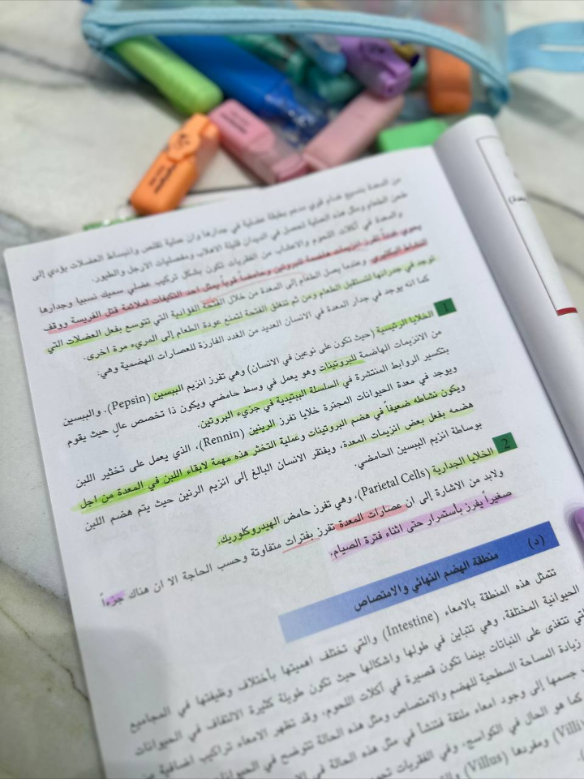 من المعدة بنسيج ضام قوي مدعم بطبقة عضلية في جدارها وان عملية تقلص وانبساط العضلات يؤدي إلى
طحن الطعام ومثل هذه العملية تحصل في الديدان قليلة الاهلاب ومفصليات الارجل والطيور.
والمعدة في آكلات اللحوم والاعشاب من الفقريات تكون بشكل تركيب عضلي سميك نسبيا وجدارها
يحوي غدداً تفرز انزيمات هاضمة للبروتين وحامضاً قوياً يمثل احد التكيفات لملائمة قتل الفريسة ووقف
النشاط البكتيري وعندما يصل الطعام إلى المعدة من خلال الفتحة الفؤادية التي تتوسع بفعل العضلات التي
توجد في جدرانها لتستقبل الطعام ومن ثم تنغلق الفتحة لتمنع عودة الطعام إلى المريء مرة اخرى.
كما انه يوجد في جدار المعدة في الانسان العديد من الغدد الفارزة للعصارات الهضمية وهي:
1 الخلايا الرئيسية (حيث تكون على نوعين في الانسان) وهي تفرز انزيم الببسين (Pepsin)، والببسين
من الانزيمات الهاضمة للبروتينات وهو يعمل في وسط حامضي ويكون ذا تخصص عالٍ حيث يقوم
بتكسير الروابط المنتشرة في السلسلة الببتيدية في جزيء البروتين.
ويوجد في معدة الحيوانات المجترة خلايا تفرز الرينين (Rennin)، الذي يعمل على تخثير اللبن
ويكون نشاطه ضعيفاً في هضم البروتينات وعملية التخثر هذه مهمة لابقاء اللبن في المعدة من اجل
هضمه بفعل بعض انزيمات المعدة. ويفتقر الانسان البالغ إلى انزيم الرنين حيث يتم هضم اللبن
بوساطة انزيم الببسين الحامضي.
2 الخلايا الجدارية (Parietal Cells)، وهي تفرز حامض الهيدروكلوريك.
ولابد من الاشارة إلى ان عصارات المعدة تفرز بفترات متفاوتة وحسب الحاجة الا ان هناك جزءاً
صغيراً يفرز بأستمرار حتى اثناء فترة الصيام.
(د) منطقة الهضم النهائي والامتصاص
تتمثل هذه المنطقة بالامعاء (Intestine) والتي تختلف اهميتها بأختلاف وظيفتها في المجاميع
الحيوانية المختلفة، وهي تتباين في طولها واشكالها حيث تكون طويلة كثيرة الالتفاف في الحيوانات
تتغذى على النباتات بينما تكون قصيرة في آكلات اللحوم، وقد تظهر الامعاء تراكيب اضافية
زيادة المساحة السطحية للهضم والامتصاص ومثل هذه الحالة تتوضح في
جسمها إلى وجود امعاء ملتفة فتنشأ في مثل هذه الحالة في
كما هو الحال في الكواسج، وفي الفقريات
(Villus) ومفردها (Villi